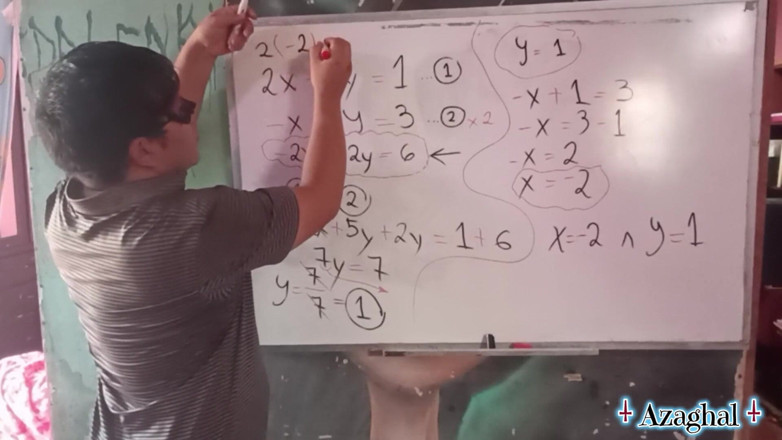 2(-2)
2x y = 1 ... ①
-x y = 3 ... ② x2
-2x 2y = 6 ←
②
x+5y+2y = 1+6
7y = 7
y = 7/7 = ①
y = 1
-x + 1 = 3
-x = 3 - 1
-x = 2
x = -2
x=-2 ∧ y=1
Azaghal